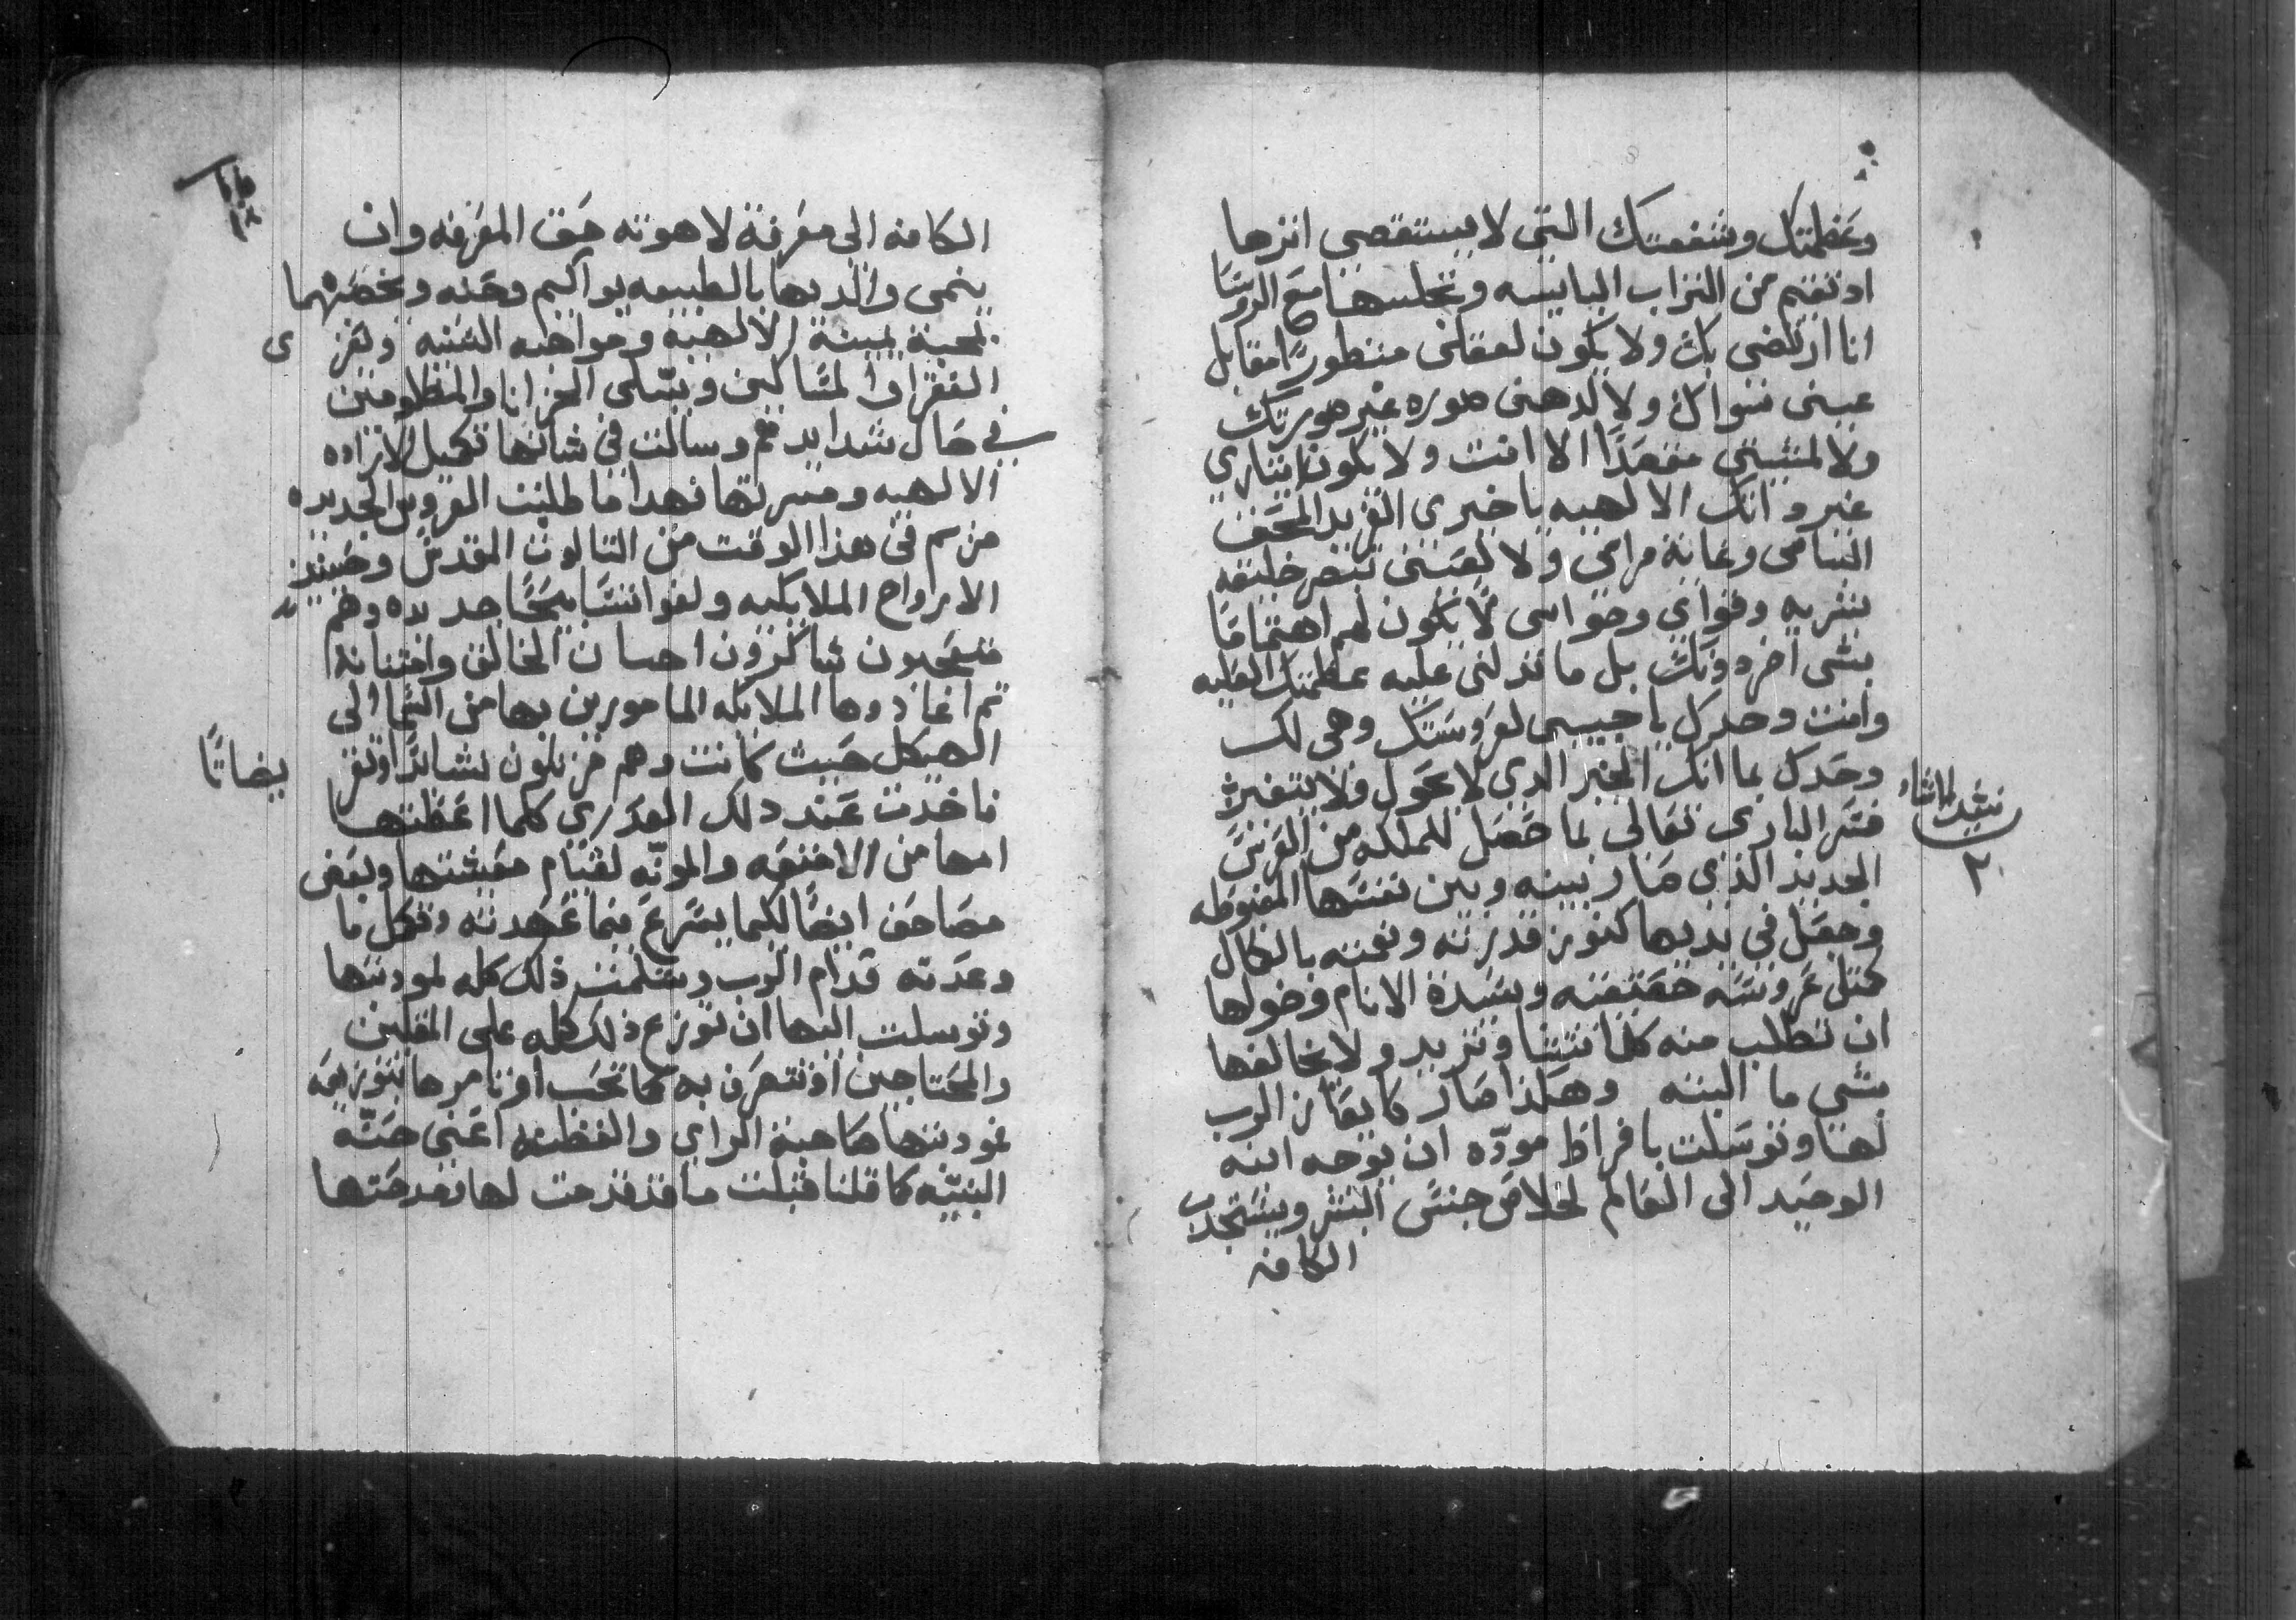 وعظمتك وشفقتك التي لا يستقصى اثرها
او تقيم من التراب البايسه وتجلسها مع الروسا
انا ارتضي بك ولا يكون لعقلي منظورًا مقابل
عيني سواك ولا لدهني صوره غير صورتك
ولا لمشيتي مقصدًا الا انت ولا يكون اختياري
غير دانك الالهيه يا خيري الفريد المحض
السامي وغاية مرامي ولا تعيني تبصر خليقه
بشريه وقواي وحواسي لا يكون لهم اهتمامًا
بشي اخر دونك بل ما تدلني عليه عظمتك العليه
وانت وحدك يا حبيبي لعروستك وهي لك
وحدك بما انك الخير الدي لا يحول ولا يتغير
فسر الباري تعالى بما حصل للملكه من العرس
الجديد الذي صار بينه وبين نفسها المغبوطه
وجعل في يديها كنوز قدرته ونعمته بالكمال
كمثل عروسته حقيقته وسيدة الانام وخولها
ان تطلب منه كلما تشا وتريد ولا يخالفها
بشي ما البته وهكذا صار كما يقال ان الرب
لهنا وتوسلت بافراط موده ان يوجه ابنه
الوحيد الى العالم لخلاص جنس البشر ويستجدب
الكافه
نشيد الانشاد
٢
الكافه الى معرفة لاهوته حق المعرفه وان
ينمي والديها بالطبيعه يواكيم وحنه ويخصهما
لمحبة يمينه الالهيه ومواهبه السنيه ويعزي
الفقرا والمساكين ويسلي الحزانا والمظلومين
في حال شدايدهم وسالت في شانها تكميل الاراده
الالهيه ومسرتها فهدا ما طلبت العروس الجديده
مريم في هذا الوقت من التالوت المقدس وحينيد
الارواح الملايكيه ولفوا تسابيحًا جديده وهم
متعجبون شاكرون احسان الخالق وامتنانه
تم اعادوها الملايكه المامورين بها من السما الى
الهيكل حيث كانت وهم مرتلون نشايدًا وتقريضاتًا
فاخدت عند دلك العدري كلما اعطتها
امها من الامتعه والمونه لقيام معيشتها وبعض
مصاحف ايضًا لكيما يسرع فيما عهدته وتكمل ما
وعدته قدام الرب وسلمت ذلك كله لمودبتها
وتوسلت اليها ان توزع ذلك كله على المقلين
والمحتاجين او تتصرف به كما تحب او تامرها بتوزيعه
مودبتها صاحبة الراي والفطنه اعني حنه
النبيه كما قلنا قبلت ما قد قدمت لها ومدحتها